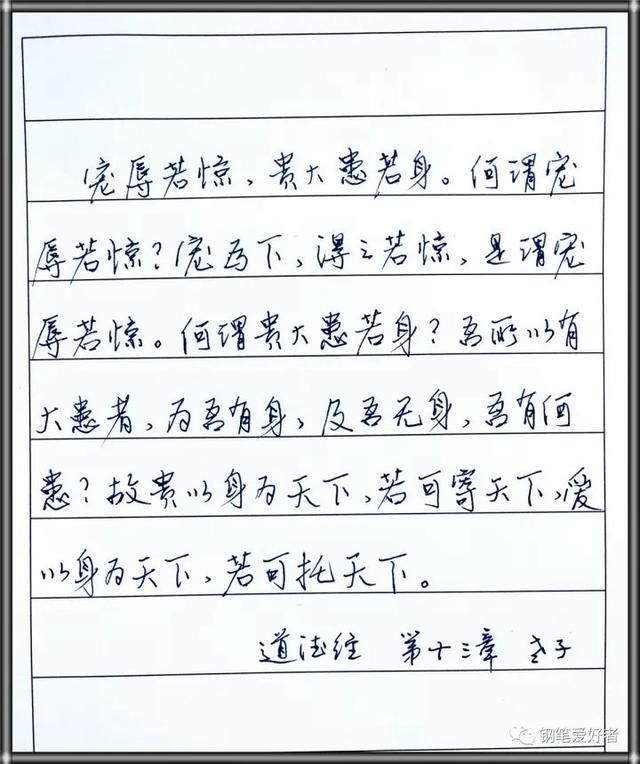 宠辱若惊、贵大患若身。何谓宠
辱若惊？宠为下、得之若惊、是谓宠
辱若惊。何谓贵大患若身？吾所以有
大患者、为吾有身、及吾无身、吾有何
患？故贵以身为天下、若可寄天下、爱
以身为天下、若可托天下。
道德经 第十三章 老子
钢笔爱好者